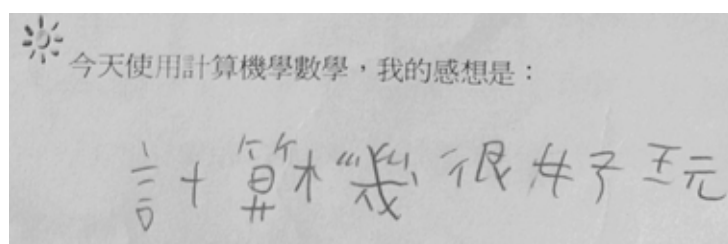 今天使用計算機學數學，我的感想是：
計算機很好玩